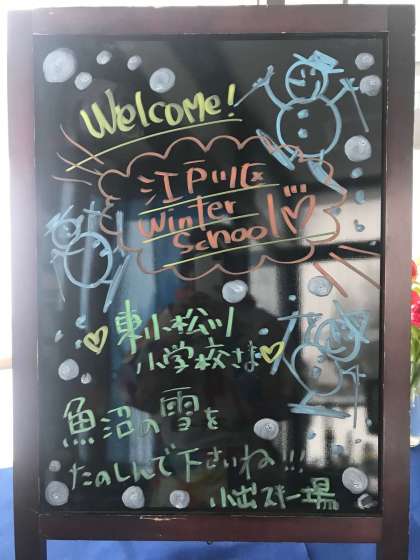 Welcome!
江戸川区
Winter
School
東小松川
小学校さま
魚沼の雪を
たのしんで下さいね!!!
小出スキー場